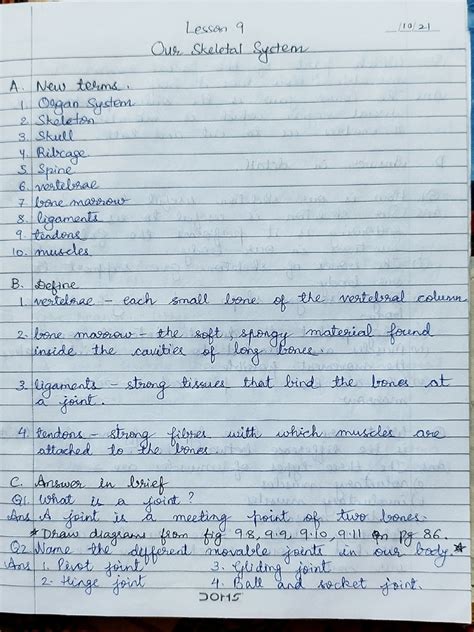 Lesson 9
__/10/21
Our Skeletal System
A. New terms.
1. Organ System
2. Skeleton
3. Skull
4. Ribcage
5. Spine
6. vertebrae
7. bone marrow
8. ligaments
9. tendons
10. muscles
B. Define
1. vertebrae – each small bone of the vertebral column
2. bone marrow – the soft spongy material found
inside the cavities of long bones
3. ligaments – strong tissues that bind the bones at
a joint.
4. tendons – strong fibres with which muscles are
attached to the bones
C. Answer in brief
Q1. What is a joint?
Ans A joint is a meeting point of two bones.
* Draw diagrams from fig 9.8, 9.9, 9.10, 9.11 on pg 86.
Q2 Name the different movable joints in our body. *
Ans 1. Pivot joint 3. Gliding joint
2. Hinge joint 4. Ball and socket joint.
DOMS